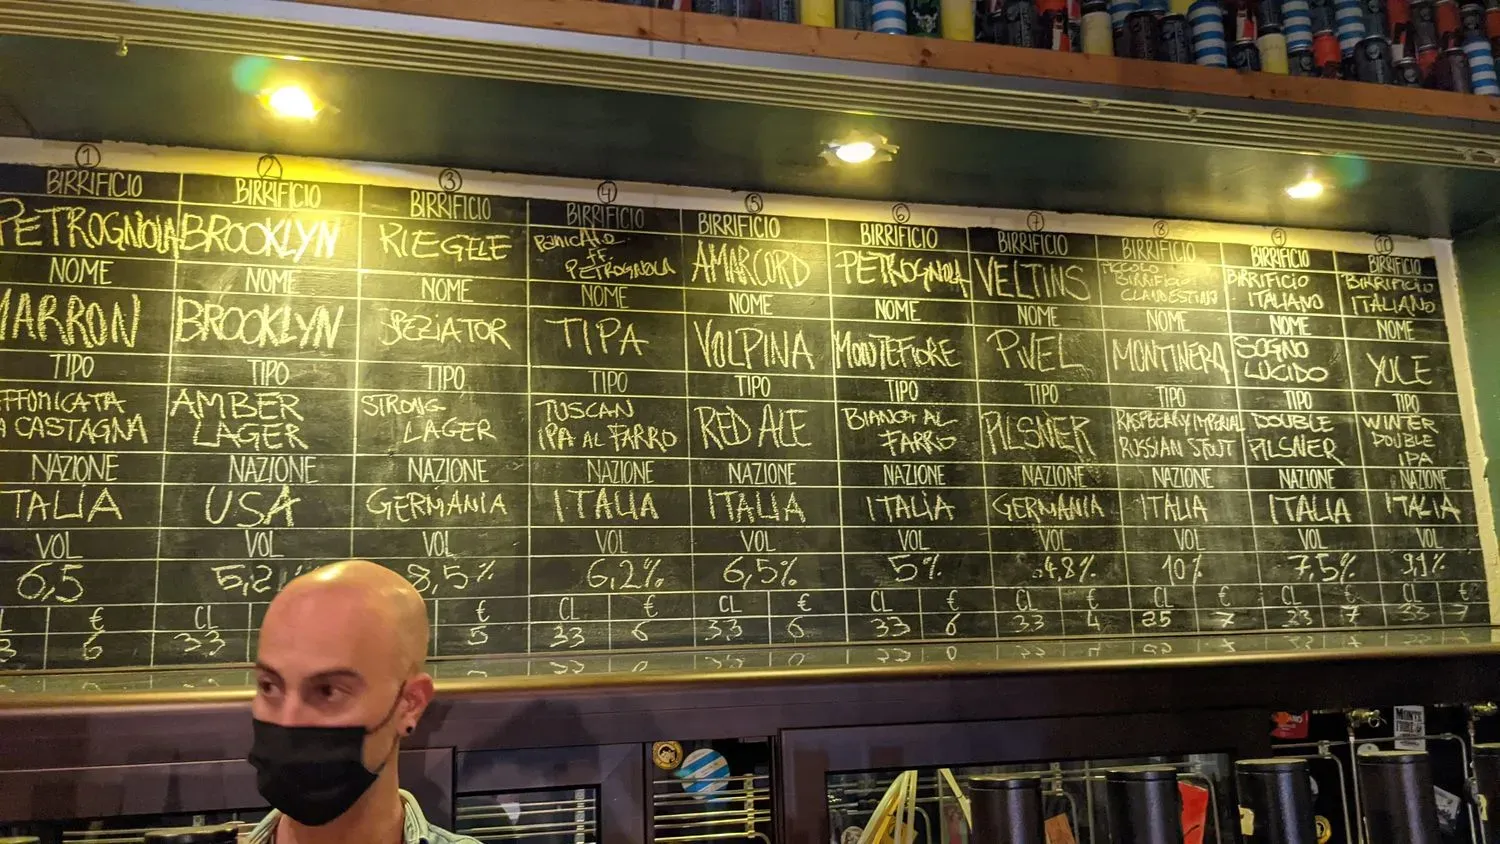 1 2 3 4 5 6 7 8 9 10
BIRRIFICIO BIRRIFICIO BIRRIFICIO BIRRIFICIO BIRRIFICIO BIRRIFICIO BIRRIFICIO BIRRIFICIO BIRRIFICIO BIRRIFICIO
PETROGNOLA BROOKLYN RIEGELE PANICALE AMARCORD PETROGNOLA VELTINS PICCOLO BIRRIFICIO BIRRIFICIO
FF. BIRRIFICIO ITALIANO ITALIANO
PETROGNOLA CLANDESTINO
NOME NOME NOME NOME NOME NOME NOME NOME NOME NOME
MARRON BROOKLYN SPEZIATOR TIPA VOLPINA MONTEFIORE PIVEL MONTINERA SOGNO YULE
LUCIDO
TIPO TIPO TIPO TIPO TIPO TIPO TIPO TIPO TIPO TIPO
FFUMICATA AMBER STRONG TUSCAN RED ALE BIANCA AL PILSNER RASPBERRY IMPERIAL DOUBLE WINTER
A CASTAGNA LAGER LAGER IPA AL FARRO FARRO RUSSIAN STOUT PILSNER DOUBLE
IPA
NAZIONE NAZIONE NAZIONE NAZIONE NAZIONE NAZIONE NAZIONE NAZIONE NAZIONE NAZIONE
ITALIA USA GERMANIA ITALIA ITALIA ITALIA GERMANIA ITALIA ITALIA ITALIA
VOL VOL VOL VOL VOL VOL VOL VOL VOL VOL
6,5 5,2 8,5% 6,2% 6,5% 5% 4,8% 10% 7,5% 9,1%
€ CL € CL € CL € CL € CL € CL € CL € CL €
6 33 5 33 6 33 6 33 6 33 4 25 7 33 7 33 7